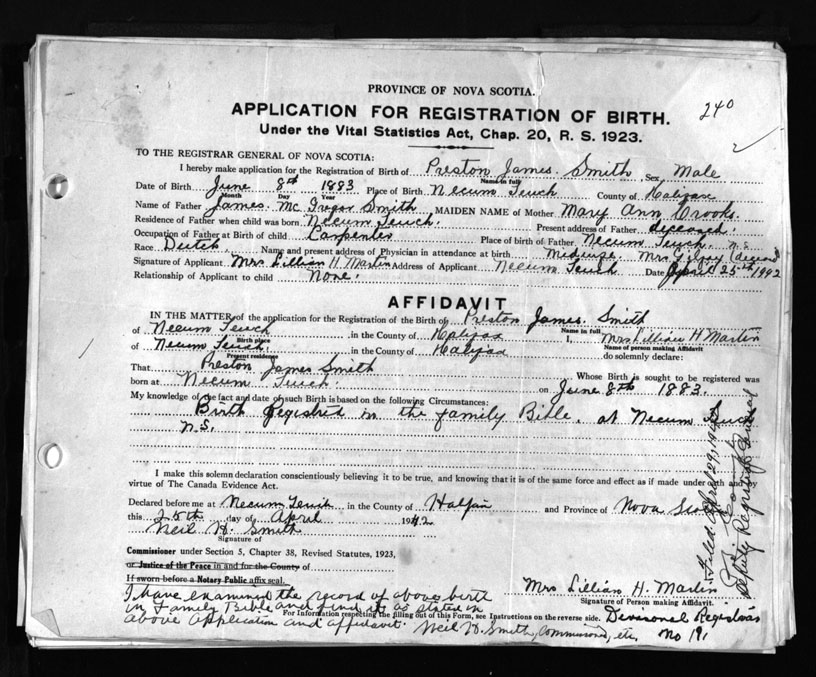 PROVINCE OF NOVA SCOTIA.
240
APPLICATION FOR REGISTRATION OF BIRTH.
Under the Vital Statistics Act, Chap. 20, R. S. 1923.
TO THE REGISTRAR GENERAL OF NOVA SCOTIA:
I hereby make application for the Registration of Birth of Preston James Smith Sex Male
Name in full
Date of Birth June 8th 1883 Place of Birth Necum Teuch County of Halifax
Month Day Year
Name of Father James Mc Gregor Smith MAIDEN NAME of Mother Mary Ann Crooks.
Residence of Father when child was born Necum Teuch. Present address of Father deceased.
Occupation of Father at Birth of child Carpenter Place of birth of Father Necum Teuch, N.S.
Race Dutch Name and present address of Physician in attendance at birth Midwife. Mrs (deceased)
Signature of Applicant Mrs Lillian H Martin Address of Applicant Necum Teuch Date April 25th 1942
Relationship of Applicant to child None.
AFFIDAVIT
IN THE MATTER of the application for the Registration of the Birth of Preston James Smith
Name in full
of Necum Teuch in the County of Halifax I, Mrs Lillian H Martin
Birth place Name of person making Affidavit
of Necum Teuch. in the County of Halifax do solemnly declare:
Present residence
That Preston James Smith Whose Birth is sought to be registered was
born at Necum Teuch. on June 8th 1883.
My knowledge of the fact and date of such Birth is based on the following Circumstances:
Birth Registred in the family Bible, at Necum Teuch
N.S.
I make this solemn declaration conscientiously believing it to be true, and knowing that it is of the same force and effect as if made under oath and by
virtue of The Canada Evidence Act.
Declared before me at Necum Teuch in the County of Halifax and Province of Nova Scotia
this 25th day of April 1942
Neil H. Smith
Signature of
Commissioner under Section 5, Chapter 38, Revised Statutes, 1923,
or Justice of the Peace in and for the County of
If sworn before a Notary Public affix seal.
Mrs Lillian H. Martin
Signature of Person making Affidavit.
I have examined the record of above birth
in Family Bible and find it as stated in
above application and affidavit. Neil H. Smith, Commissioner, etc.
For Information respecting the filling out of this Form, see Instructions on the reverse side.
Divisional Registrar
No 191
Filed April 29, 1942
Deputy Registrar General